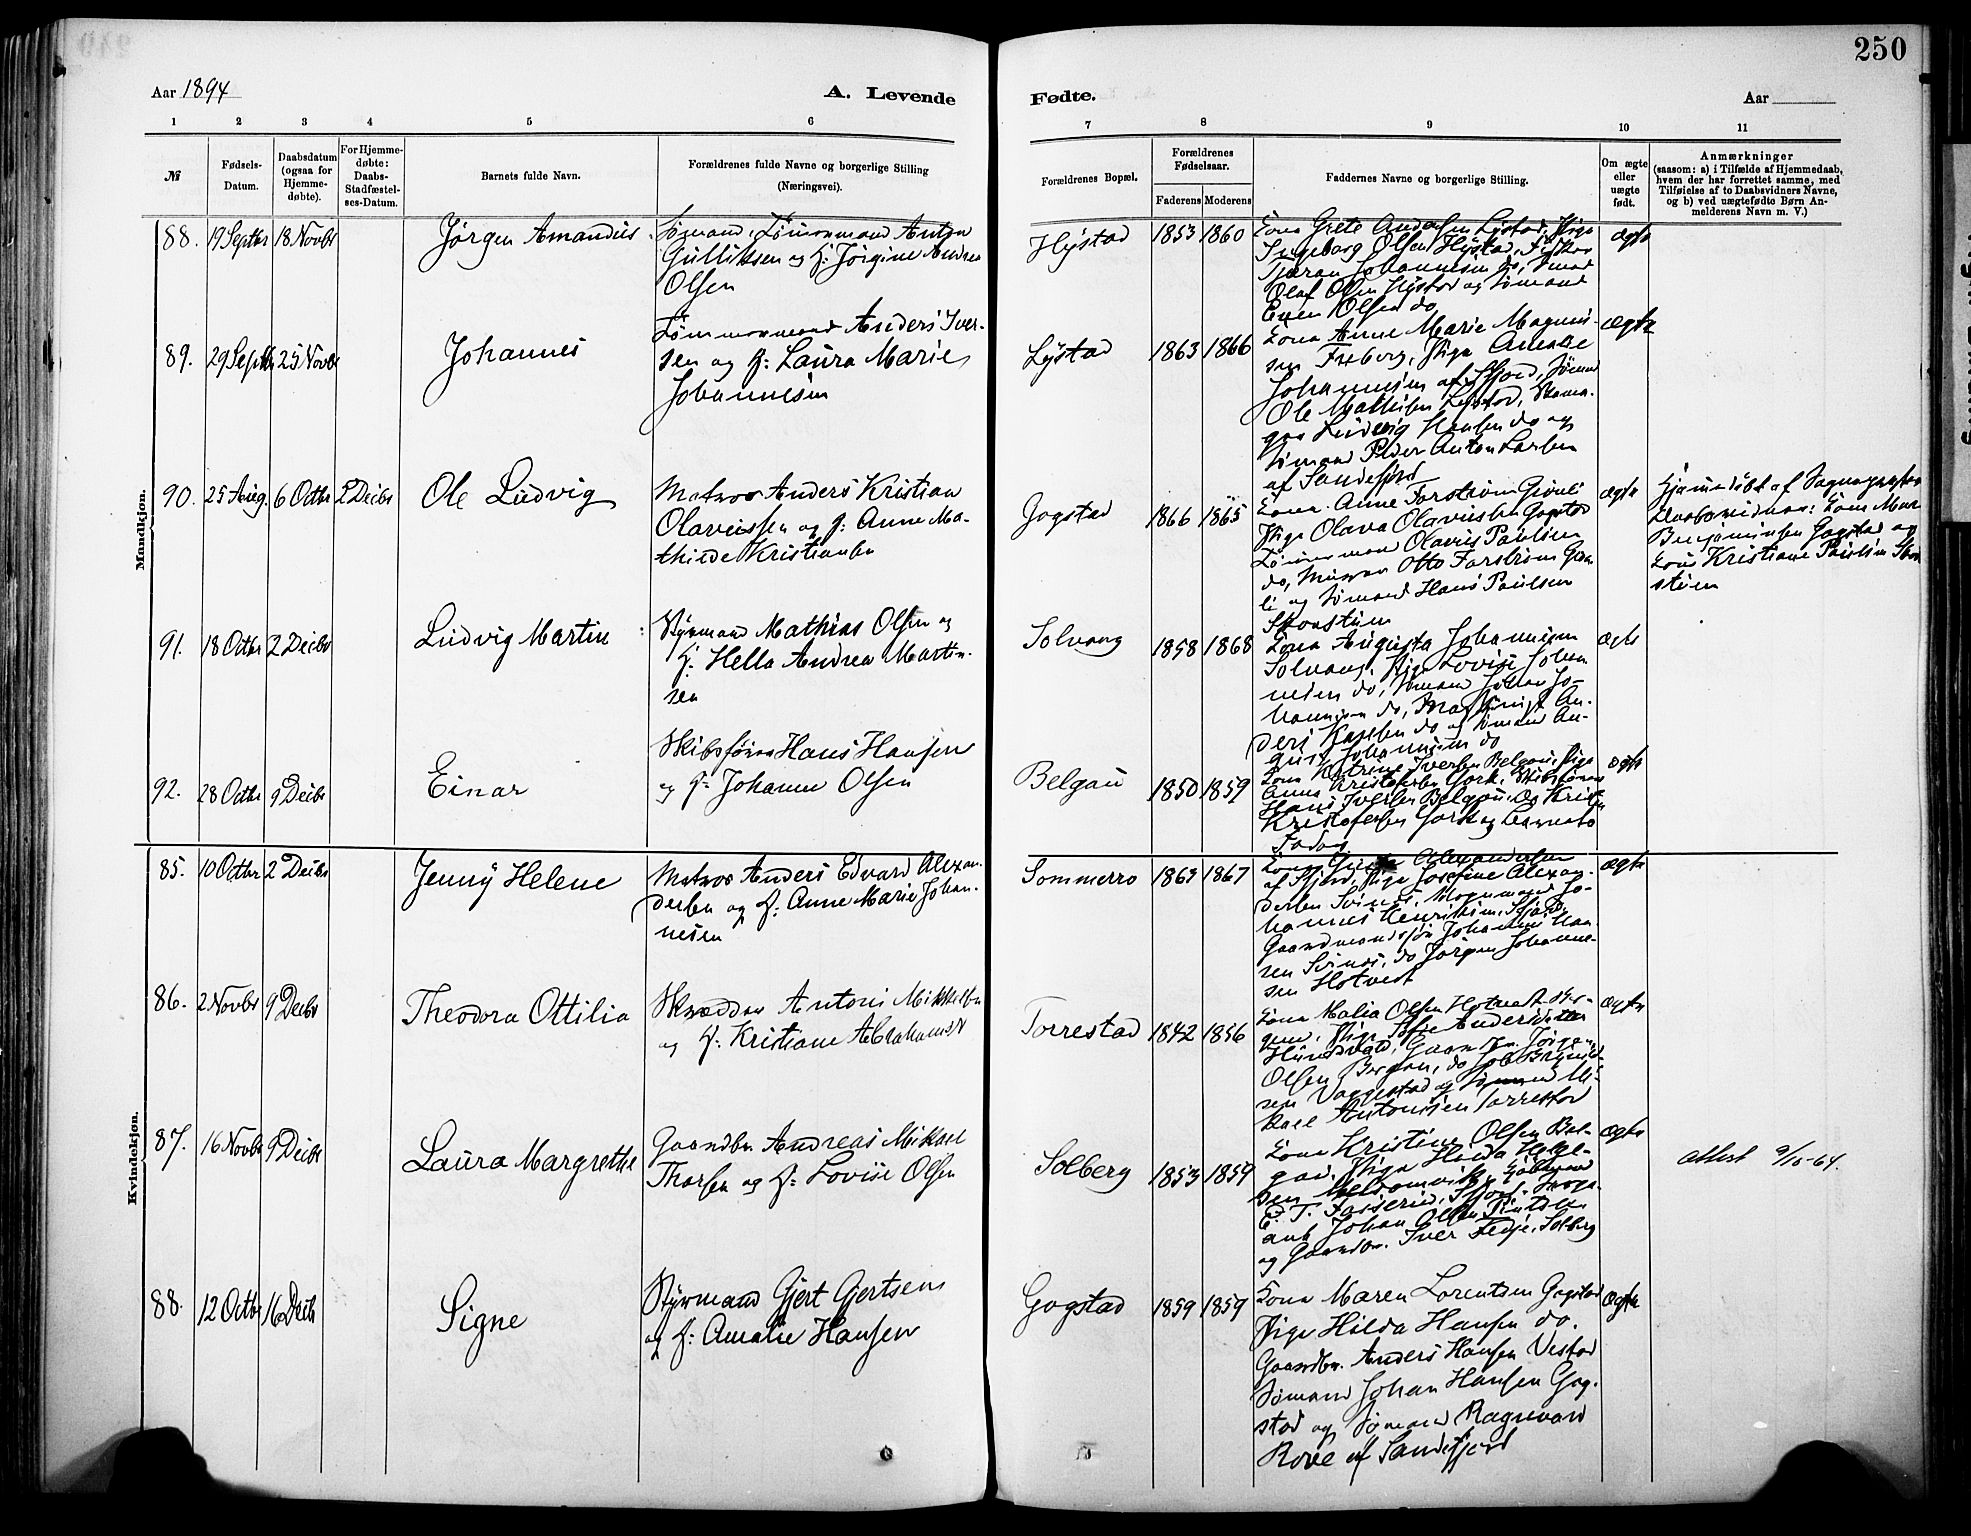 250
Aar 1894
A. Levende
Fødte.
Aar
1 2 3 4 5 6
7 8 9 10 11
№
Fødsels-
Datum.
Daabsdatum
(ogsaa for
Hjemme-
døbte).
For Hjemme-
døbte:
Daabs-
Stadfæstel-
ses-Datum.
Barnets fulde Navn.
Forældrenes fulde Navne og borgerlige Stilling
(Næringsvei).
Forældrenes Bopæl.
Forældrenes
Fødselsaar.
Faderens Moderens
Faddernes Navne og borgerlige Stilling.
Om ægte
eller
uægte
født.
Anmærkninger
(saasom: a) i Tilfælde af Hjemmedaab,
hvem der har forrettet samme, med
Tilføielse af to Daabsvidners Navne,
og b) ved uægtefødte Børn An-
melderens Navn m. V.)
Mandkjøn.
88. 19 Septbr 18 Novbr Jørgen Amandus
Tømmermand Anton
Gulliksen og H: Jørgine Andrea
Olsen
Hystad 1853 1860
Ingeborg Olsen Hystad
Johannesen do,
Olaf Olsen Hystad og Sømand
Even Olsen do
ægte
89. 29 Septbr 25 Novbr Johannes
Tømmermand Anders Iver-
sen og H: Laura Marie
Johannesen
Lystad 1863 1866
Kona Anne Marie Magnus-
sen Freberg, Pige
Johannesen af Sfjord, Sømand
Ole Mathisen Lystad,
Ludvig Hansen do og
Sømand Peder Anton Larsen
af Sandefjord
ægte
90. 25 Aug. 6 Octbr 2 Decbr Ole Ludvig
Matros Anders Kristian
Olaviussen og H: Anne Ma-
thilde Kristiansen
Gogstad 1866 1865
Kona Anne Forstrøm
Pige Olava Olaviussen Gogstad
Tømmermand Olavus Paulsen
do, Otto Forstrøm
og Sømand Hans Paulsen
ægte
Hjemmedøbt af Sognepresten
Daabsvidner: Kone
Benjaminsen Gogstad og
Kone Kristiane Paulsen
91. 18 Octbr 2 Decbr Ludvig Martin
Styrmand Mathias Olsen og
H: Hella Andrea Martin-
sen
Solvang 1858 1868
Kona Augusta Johannesen
Solvang, Pige Lovise Johan-
nesen do, Sømand Johan Jo-
hannesen do, An-
ders do og Sømand Au-
gust Johannesen do
ægte
92. 28 Octbr 9 Decbr Einar
Skibsfører Hans Hansen
og H: Johanne Olsen
Belgau 1850 1859
Kona Katrine Iversen Belgau, Pige
Anna Kristofersen Gork, Skibsfører
Hans Iversen Belgau, og
Kristofersen Gork og Barnets
Fader
ægte
Kvindekjøn.
85. 10 Octbr 2 Decbr Jenny Helene
Matros Anders Edvard Alexan-
dersen og H: Anne Marie Johan-
nesen
Sommerro 1863 1867
Alexandersen
af Sfjord, Pige Josefine Alexan-
dersen Jo-
hannes Henriksen, Sfjord,
Gaardmandssøn Johannes Han-
sen do Jørgen Johanne-
sen Hotvedt
ægte
86. 2 Novbr 9 Decbr Theodora Ottilia
Skrædder Antoni Mikkelsen
og H: Kristiane Abrahamsd
Torrestad 1842 1856
Kona Malia Olsen Hotvedt
Pige Sofie Andersdatter
Jørgen
Olsen Bergan, do
og Sømand Mi-
kael Antonisen Torrestad
ægte
87. 16 Novbr 9 Decbr Laura Margrethe
Gaardbr. Andreas Mikael
Thorsen og H: Lovise Olsen
Solberg 1853 1859
Kona Kristine Olsen Bel-
gau, Pige Hilda
Johan Olsen
og Gaardbr. Iver Fedje, Solberg
ægte
attest 9/10-64.
88. 12 Octbr 16 Decbr Signe
Styrmand Gjert Gjertsen
og H: Amalie Hansen
Gogstad 1859 1859
Kona Maren Lorentsen Gogstad
Pige Hilda Hansen do.
Gaardbr. Anders Hansen Vestad
Sømand Johan Hansen Gog-
stad og Sømand Ragnvard
Rove af Sandefjord
ægte